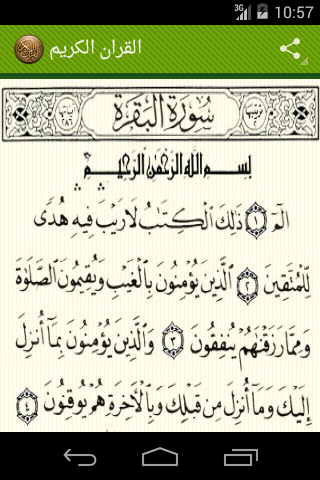 3G 10:57
القران الكريم
سورة البقرة
بسم الله الرحمن الرحيم
الٓمٓ ١ ذَٰلِكَ الْكِتَٰبُ لَا رَيْبَ فِيهِ هُدًى
لِّلْمُتَّقِينَ ٢ الَّذِينَ يُؤْمِنُونَ بِالْغَيْبِ وَيُقِيمُونَ الصَّلَوٰةَ
وَمِمَّا رَزَقْنَٰهُمْ يُنفِقُونَ ٣ وَالَّذِينَ يُؤْمِنُونَ بِمَآ أُنزِلَ
إِلَيْكَ وَمَآ أُنزِلَ مِن قَبْلِكَ وَبِالْآخِرَةِ هُمْ يُوقِنُونَ ٤